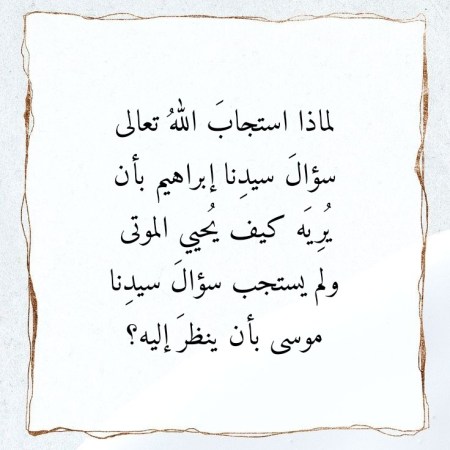 لماذا استجابَ اللهُ تعالى
سؤالَ سيدِنا إبراهيم بأن
يُرِيَه كيف يُحيي الموتى
ولم يستجب سؤالَ سيدِنا
موسى بأن ينظرَ إليه؟